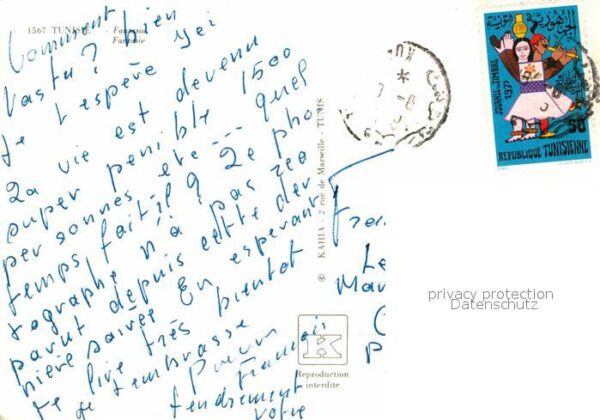 1567 TUNISIE - Fantasia
Fantasie
Comment
vastu? bien
je l'espère ici
La vie est devenu
super penible 1500
personnes
temps fait-il? Le pho
tographe n'a pas
parut depuis cette der
nière soirée En esperant
te lire très bientot
je t'embrasse
Francois
tendrement
votre
© KAHIA - 2 rue de Marseille - TUNIS
K
Reproduction
interdite
الجمهورية التونسية
JOURNÉE DU TIMBRE
1977
50
REPUBLIQUE TUNISIENNE
privacy protection
Datenschutz